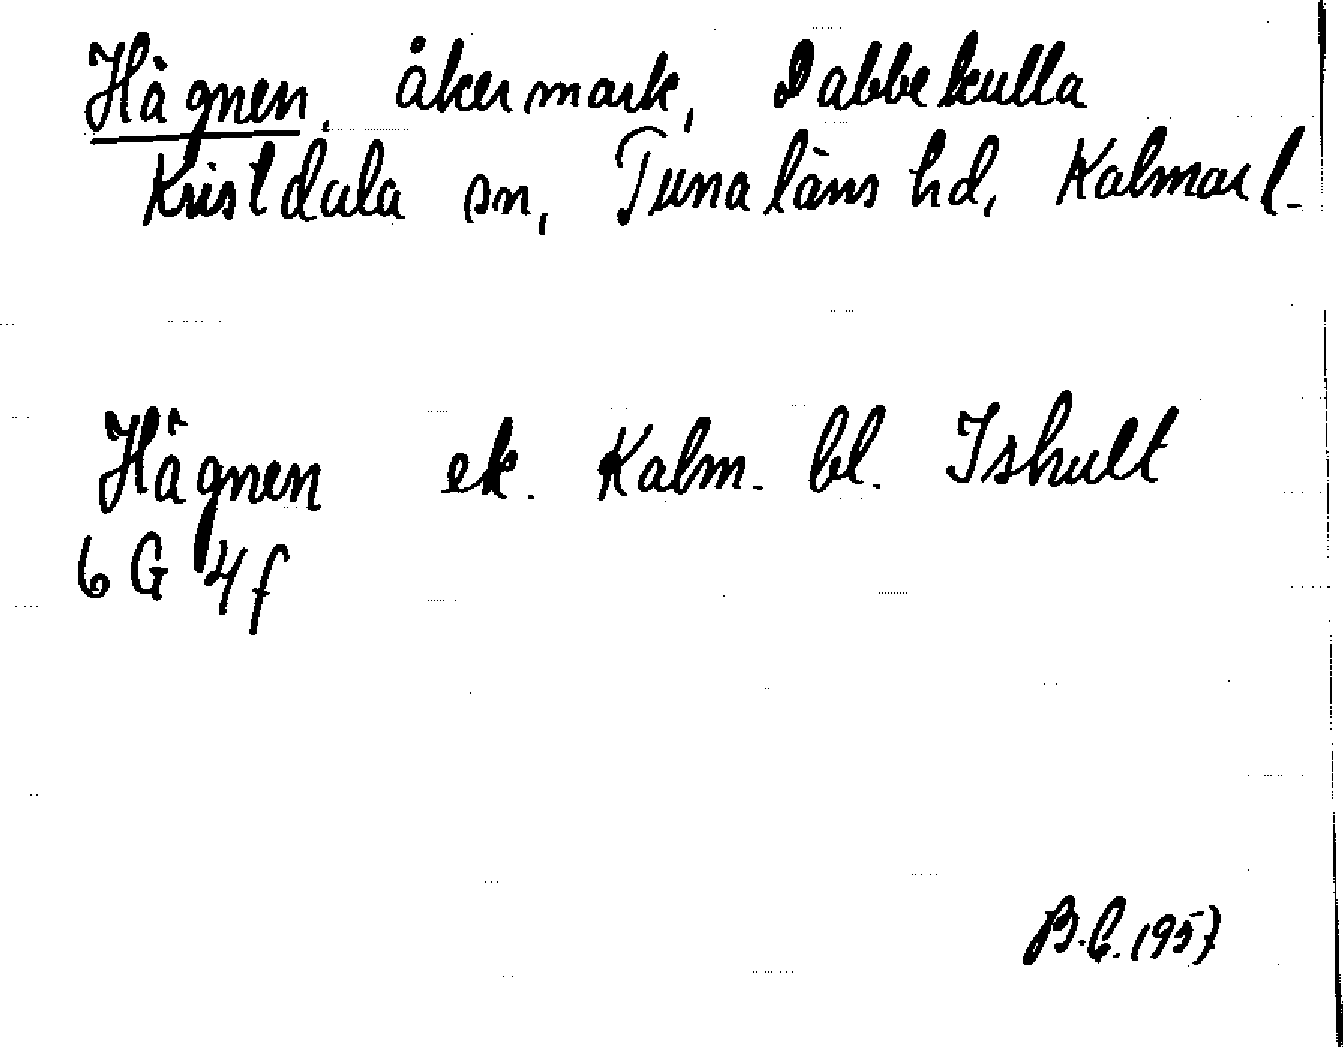 Hägnen, åkermark, Dabbekulla
Kristdala sn, Tunaläns hd, Kalmar l.
Hägnen ek. Kalm. bl. Ishult
6 G 4 f
B.C. 1957